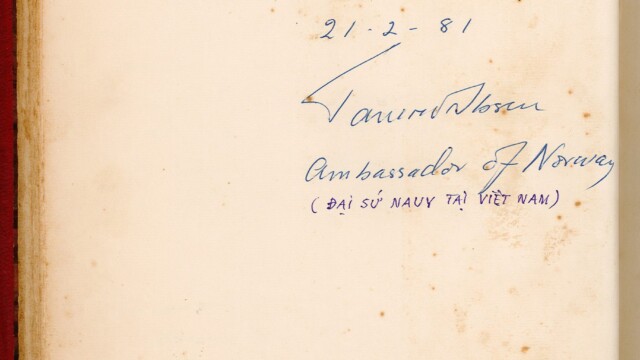 21-2-81
Tancred Ibsen
Ambassador of Norway
(ĐẠI SỨ NAUY TẠI VIỆT NAM)